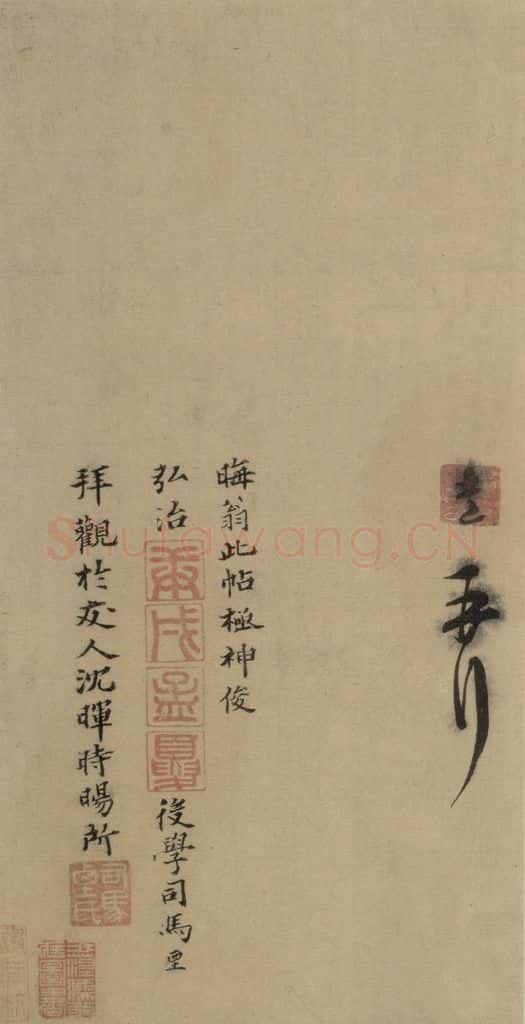 晦翁此帖極神俊
弘治庚戌孟夏後學司馬垔
拜觀於友人沈暉時暘所
Shufawang.CN